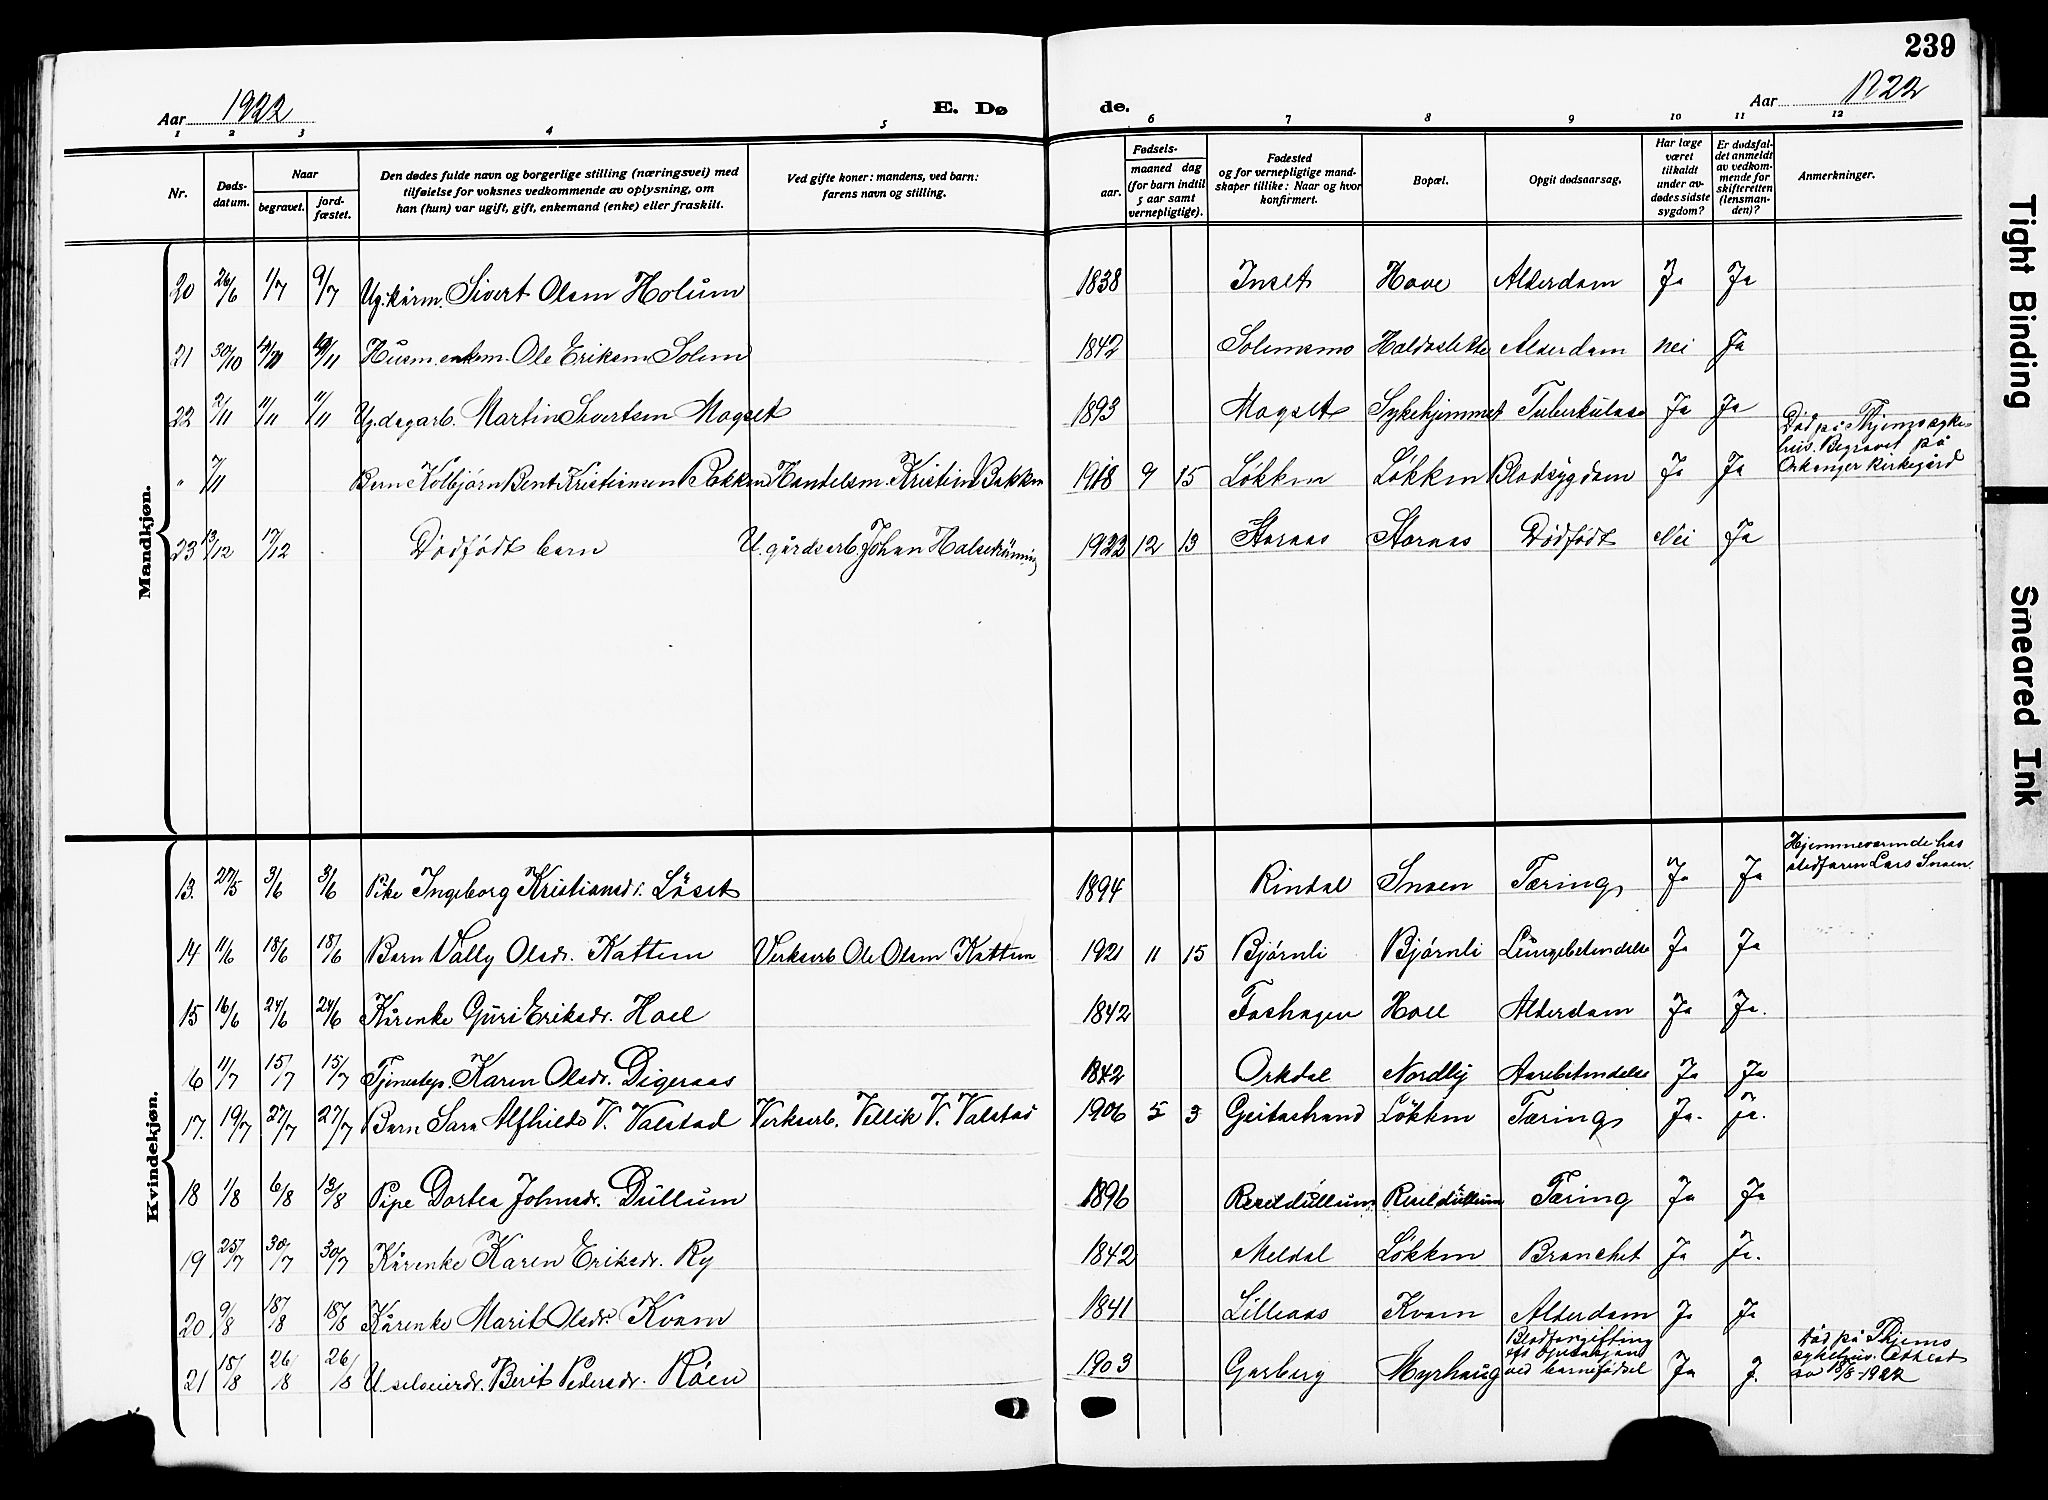 239
Aar 1922 E. Dø de. Aar 1922
1 2 3 4 5 6 7 8 9 10 11 12
Nr.
Døds-
datum.
Naar
begravet.
jord-
fæstet.
Den dødes fulde navn og borgerlige stilling (næringsvei) med
tilføielse for voksnes vedkommende av oplysning, om
han (hun) var ugift, gift, enkemand (enke) eller fraskilt.
Ved gifte koner: mandens, ved barn:
farens navn og stilling.
Fødsels-
aar.
maaned dag
(for barn indtil
5 aar samt
vernepligtige).
Fødested
og for vernepligtige mand-
skaper tillike: Naar og hvor
konfirmert.
Bopæl.
Opgit dødsaarsag.
Har læge
været
tilkaldt
under av-
dødes sidste
sygdom?
Er dødsfal-
det anmeldt
av vedkom-
mende for
skifteretten
(lensman-
den)?
Anmerkninger.
Mandkjøn.
20 26/6 1/7 9/7 Ug. kårm. Sivert Olsen Holum 1838 Inset Hove Alderdom Ja Ja
21 30/10 /11 Husm. enkem. Ole Eriksen Solem 1842 Solemsmo Haldosletta Alderdom Nei Ja
22 2/11 11/11 11/11 Ug. dagarb. Martin Sivertsen Mogset 1893 Mogset Sykehjemmet Tuberkulose Ja Ja
" 7/11 Barn Kolbjørn Bent Kristiansen Bakken Handelsm. Kristian Bakken 1918 9 15 Løkken Løkken Blodsygdom Ja Ja
Død på Thjems syke-
hus. Begravet på
Orkanger kirkegård
23 13/12 17/12 Dødfødt barn U. gårdsarb. Johan Halsetrønning 1922 12 13 Storaas Storaas Dødfødt Nei Ja
Kvindekjøn.
13. 27/5 3/6 3/6 Pike Ingeborg Kristiansdr. Løset 1894 Rindal Snoen Tæring Ja Ja
Hjemmeværende hos
stedfaren Lars Snoen.
14 11/6 18/6 18/6 Barn Vally Olsdr. Kattem Verksarb. Ole Olsen Kattem 1921 11 15 Bjørnli Bjørnli Lungebetendelse Ja Ja
15 16/6 24/6 24/6 Kårenke Guri Eriksdr. Hoel 1842 Foshagen Hoel Alderdom Ja Ja.
16 11/7 15/7 15/7 Tjenestep. Karen Olsdr. Digeraas 1842 Orkdal Nordby Aarebetendelse Ja Ja
17. 19/7 27/7 27/7 Barn Sara Alfhilde V. Valstad Verksarb. Vellik V. Valstad 1906 5 3 Geitastrand Løkken Tæring Ja. Ja.
18 1/8 6/8 13/8 Pipe Dortea Johnsdr. Dullum 1896 Resildullum Resildullum Tæring Ja Ja
19 25/7 30/7 30/7 Kårenke Karen Eriksdr. Ry 1842 Meldal Løkken Bronchit Ja Ja.
20 9/8 18/8 18/8 Kårenke Marit Olsdr. Kvam 1841 Lilleaas Kvam Alderdom Ja Ja
21 18/8 26/8 26/8 U. selveierdr. Berit Pedersdr. Røen 1903 Garberg Myrhaug
Blodforgiftning
ved barnefødsel Ja J.
Død på Thjems
sykehus. Attest
av 18/8-1922
Tight Binding
Smeared Ink